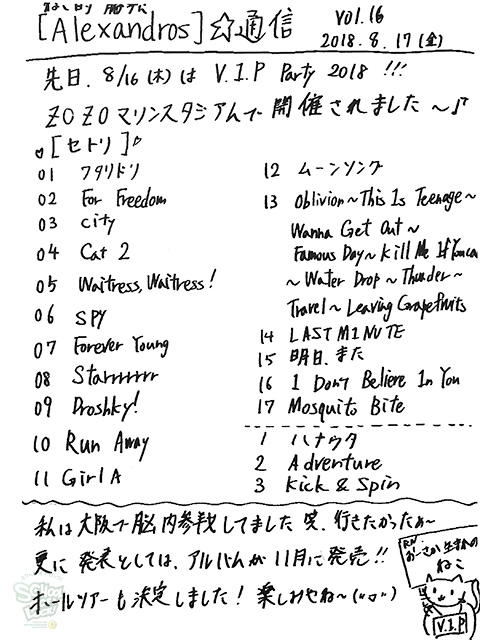 [Alexandros]☆通信
vol.16
2018.8.17(金)
先日、8/16(木)は V.I.P Party 2018 !!!
ZOZOマリンスタジアムで開催されました～♪
[セトリ]
01 ワタリドリ
02 For Freedom
03 city
04 Cat 2
05 Waitress, Waitress!
06 SPY
07 Forever Young
08 Starrrrrrr
09 Droshky!
10 Run Away
11 Girl A
12 ムーンソング
13 Oblivion～This Is Teenage～
Wanna Get Out～
Famous Day～Kill Me If You ca
～Water Drop～Thunder～
Travel～Leaving Grapefruits
14 LAST MINUTE
15 明日、また
16 I Don't Believe In You
17 Mosquito Bite
1 ハナウタ
2 Adventure
3 Kick & Spin
私は大阪で脳内参戦してました 笑、行きたかったぁ～
更に発表としては、アルバムが11月に発売!!
ホールツアーも決定しました！楽しみやね～
R.N.
ねこ
V.I.P